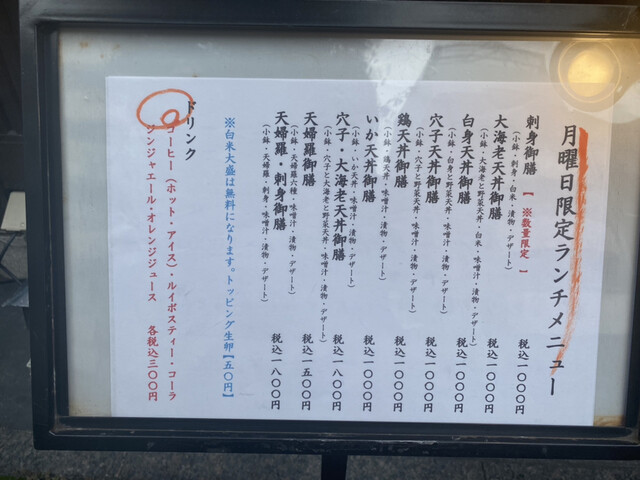 月曜日限定ランチメニュー
刺身御膳 【※数量限定】 税込一〇〇〇円
(小鉢・刺身・白米・漬物・デザート)
大海老天丼御膳 税込一〇〇〇円
(小鉢・大海老と野菜天丼・味噌汁・漬物・デザート)
白身天丼御膳 税込一〇〇〇円
(小鉢・白身と野菜天丼・味噌汁・漬物・デザート)
穴子天丼御膳 税込一〇〇〇円
(小鉢・穴子と野菜天丼・味噌汁・漬物・デザート)
鶏天丼御膳 税込一〇〇〇円
(小鉢・鶏天丼・味噌汁・漬物・デザート)
いか天丼御膳 税込一〇〇〇円
(小鉢・いか天丼・味噌汁・漬物・デザート)
穴子・大海老天丼御膳 税込一八〇〇円
(小鉢・穴子と大海老と野菜天丼・味噌汁・漬物・デザート)
天婦羅御膳 税込一五〇〇円
(小鉢・天婦羅六種・味噌汁・漬物・デザート)
天婦羅・刺身御膳 税込一八〇〇円
(小鉢・天婦羅・刺身・味噌汁・漬物・デザート)
※白米大盛は無料になります。トッピング生卵【五〇円】
ドリンク
コーヒー(ホット・アイス)・ルイボスティー・コーラ
ジンジャエール・オレンジジュース 各税込三〇〇円